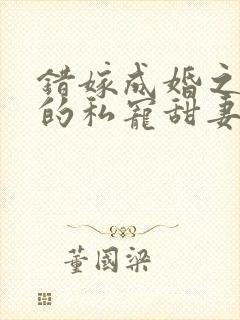 错嫁成婚之
的私宠甜妻
董国梁